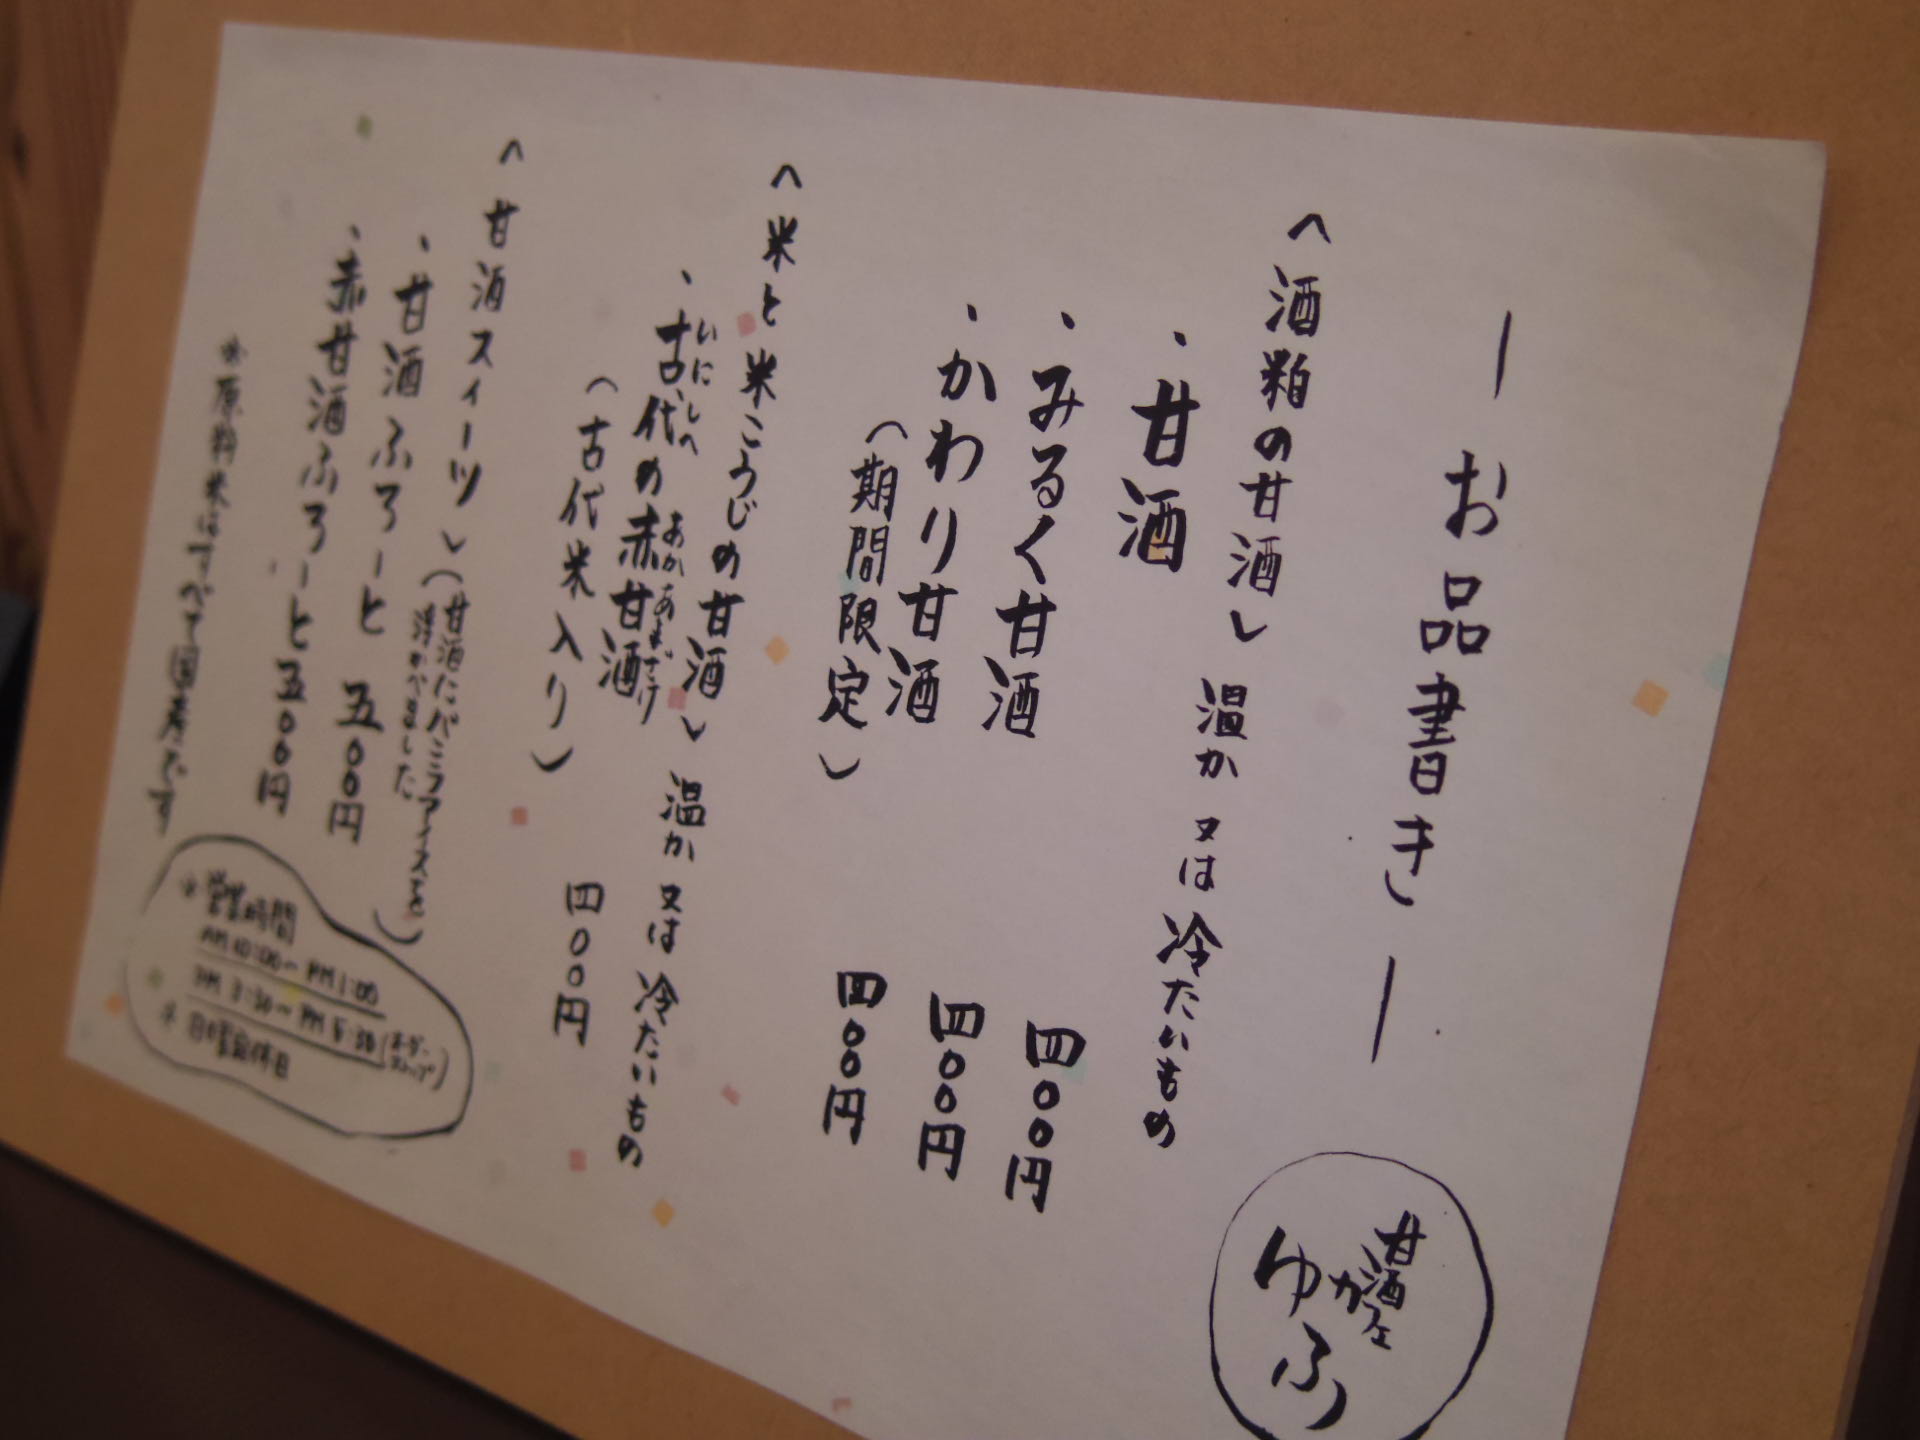 ― お品書き ―
甘酒
カフェ
ゆふ
〈酒粕の甘酒〉 温か 又は 冷たいもの
・甘酒 四〇〇円
・みるく甘酒 四〇〇円
・かわり甘酒 四〇〇円
(期間限定)
〈米と米こうじの甘酒〉 温か 又は 冷たいもの
いにしへ あかあまざけ
・古代の赤甘酒 四〇〇円
(古代米入り)
〈甘酒スイーツ〉(甘酒にバニラアイスを
浮かべました)
・甘酒ふろーと 五〇〇円
・赤甘酒ふろーと 五〇〇円
※原料米はすべて国産です
※営業時間
AM10:00～PM1:00
PM3:30～PM5:30(オーダーストップ)
※日曜定休日